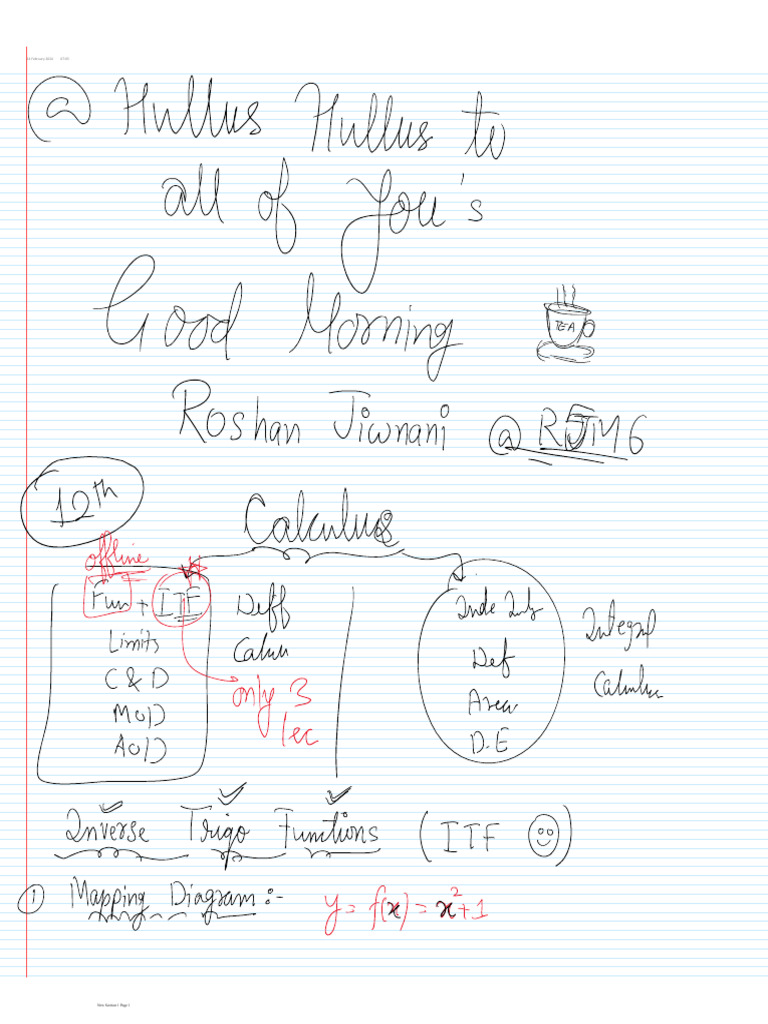 @ Hullus Hullus to
all of You's
Good Morning
TEA
Roshan Jiwnani @ RJM6
12th
Calculus
offline
Fun + ITF
Limits
C & D
MOD
AOD
Diff
Calcu
only 3
lec
Inde Intg
Def
Area
D.E
Integral
Calculus
Inverse Trigo Functions (ITF)
① Mapping Diagram :- y = f(x) = x²+1